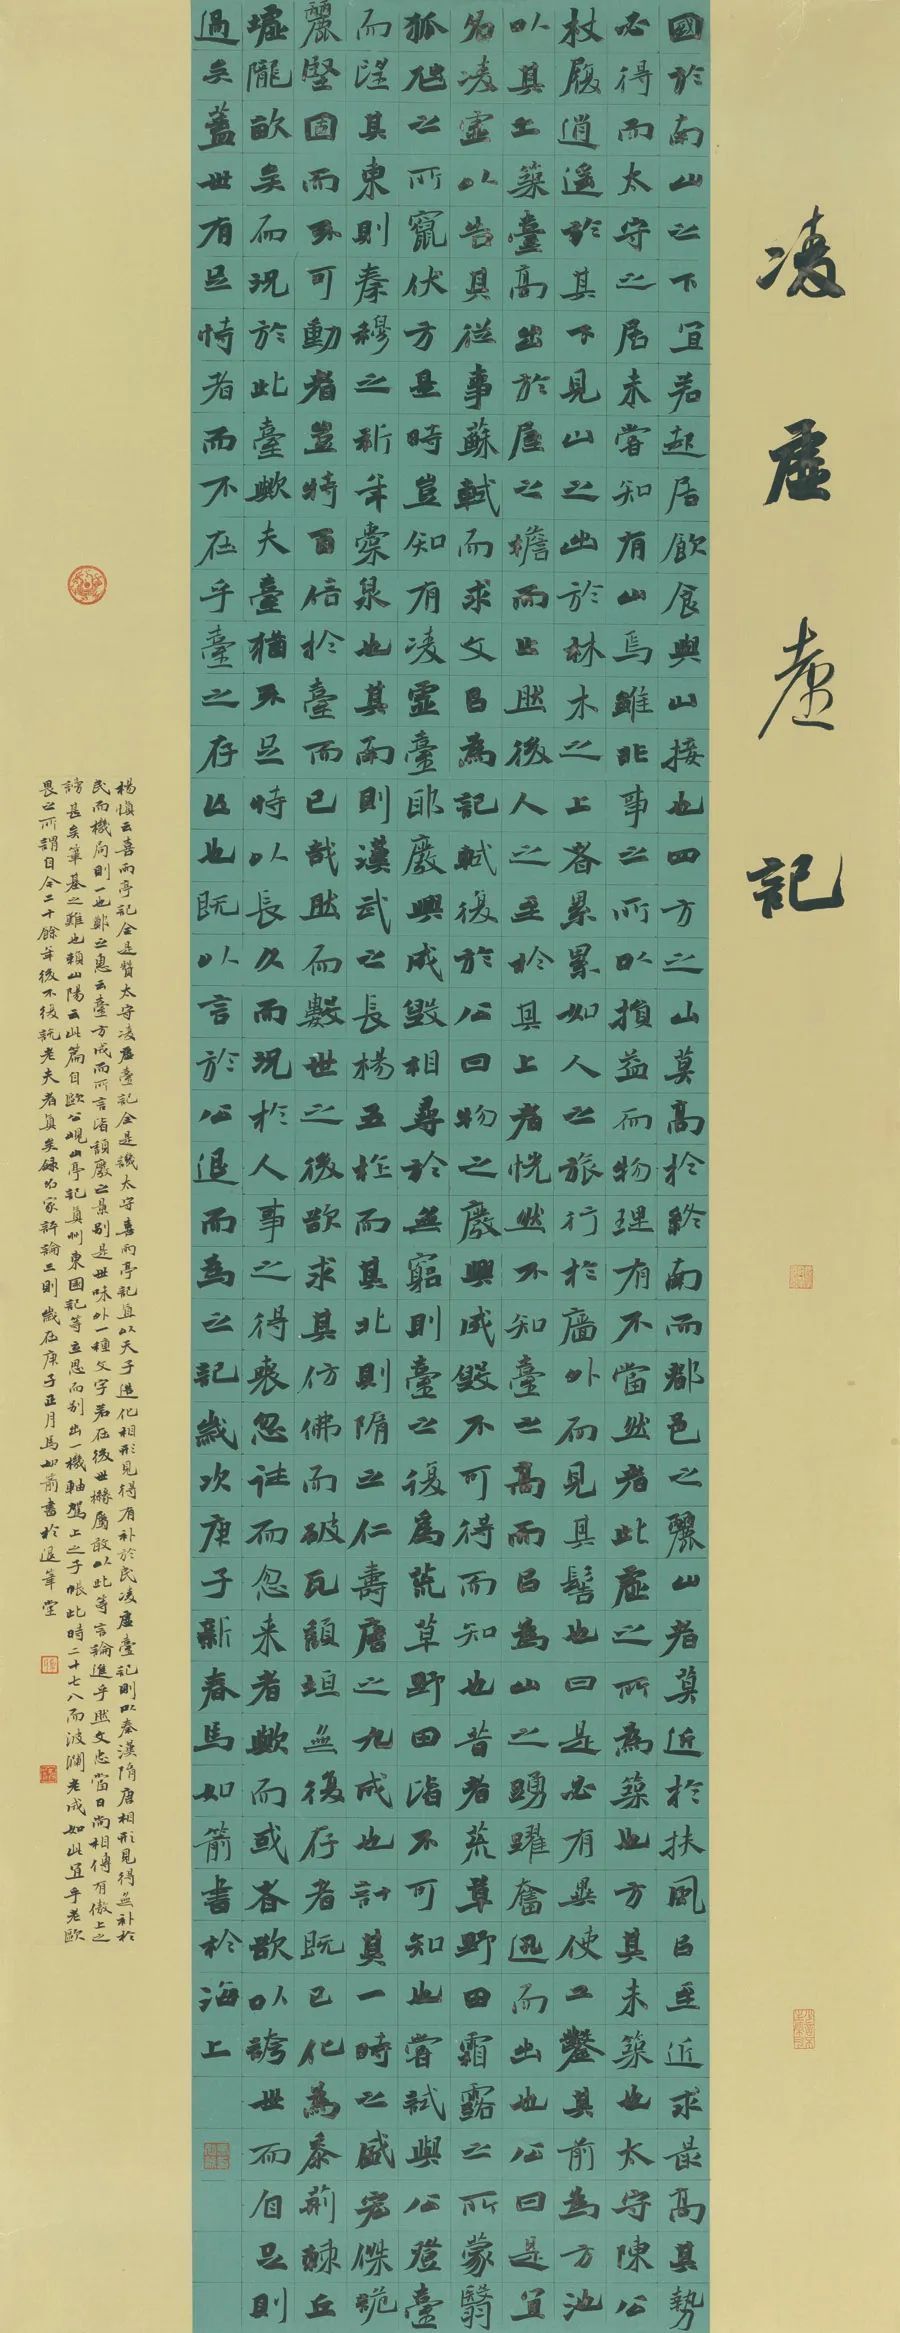 凌虛臺記
國於南山之下宜若起居飲食與山接也四方之山莫高於終南而都邑之麗山者莫近於扶風以至近求最高其勢
必得而太守之居未嘗知有山焉雖非事之所以損益而物理有不當然者此虛之所為築也方其未築也太守陳公
杖履逍遙於其下見山之出於林木之上者累累如人之旅行於牆外而見其髻也曰是必有異使工鑿其前為方池
以其土築臺高出於屋之檐而止然後人之至於其上者恍然不知臺之高而以為山之踴躍奮迅而出也公曰是宜
名凌虛以告其從事蘇軾而求文以為記軾復於公曰物之廢興成毀不可得而知也昔者荒草野田霜露之所蒙翳
狐虺之所竄伏方是時豈知有凌虛臺耶廢興成毀相尋於無窮則臺之復為荒草野田皆不可知也嘗試與公登臺
而望其東則秦穆之祈年橐泉也其南則漢武之長楊五柞而其北則隋之仁壽唐之九成也計其一時之盛宏傑詭
麗堅固而不可動者豈特百倍於臺而已哉然而數世之後欲求其仿佛而破瓦頹垣無復存者既已化為黍荊棘丘
墟隴畝矣而況於此臺歟夫臺猶不足恃以長久而況於人事之得喪忽往而忽來者歟而或者欲以誇世而自足則
過矣蓋世有足恃者而不在乎臺之存亡也既以言於公退而為之記歲次庚子新春馬如箭書於海上
楊慎云喜雨亭記全是贊太守凌虛臺記全是譏太守喜雨亭記直以天子造化相形見得有補於民凌虛臺記則以秦漢隋唐相形見得無補於
民而機局則一也鄭之惠云臺方成而所言皆頹廢之景別是世味外一種文字若在後世掾屬敢以此等言論進乎然文忠當日尚相傳有傲上之
謗甚矣筆墓之難也賴山陽云此篇自歐公峴山亭記真州東園記等立思而別出一機軸駕上之子瞻此時二十七八而波瀾老成如此宜乎老歐
畏之所謂自今二十餘年後不復說老夫者真矣錄名家評論三則歲在庚子正月馬如箭書於退筆堂